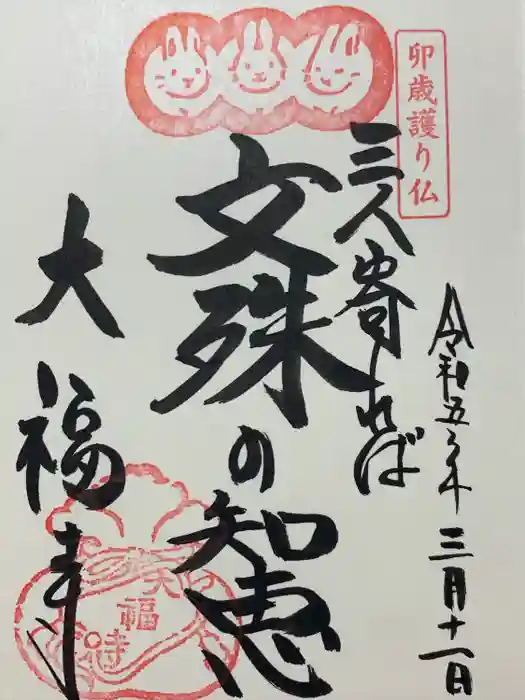 卯歳護り仏
令和五年三月十一日
三人寄れば
文殊の智恵
大福寺
大福寺